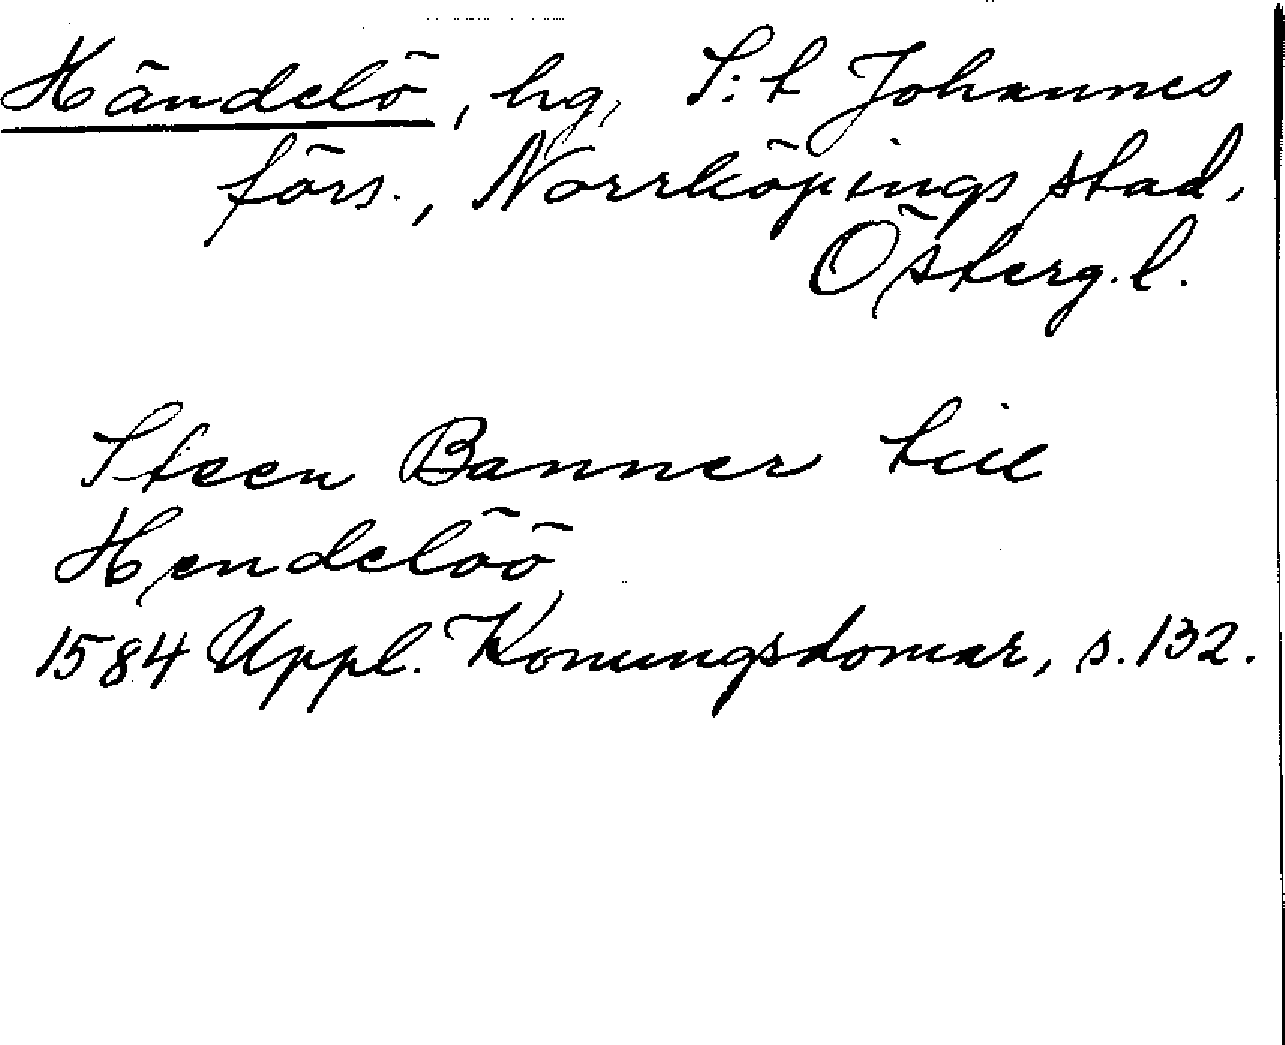 Händelö, hg, S:t Johannes
förs., Norrköpings stad,
Österg.l.
Steen Banner till
Hendelöö
1584 Uppl. Konungsdomar, s. 132.